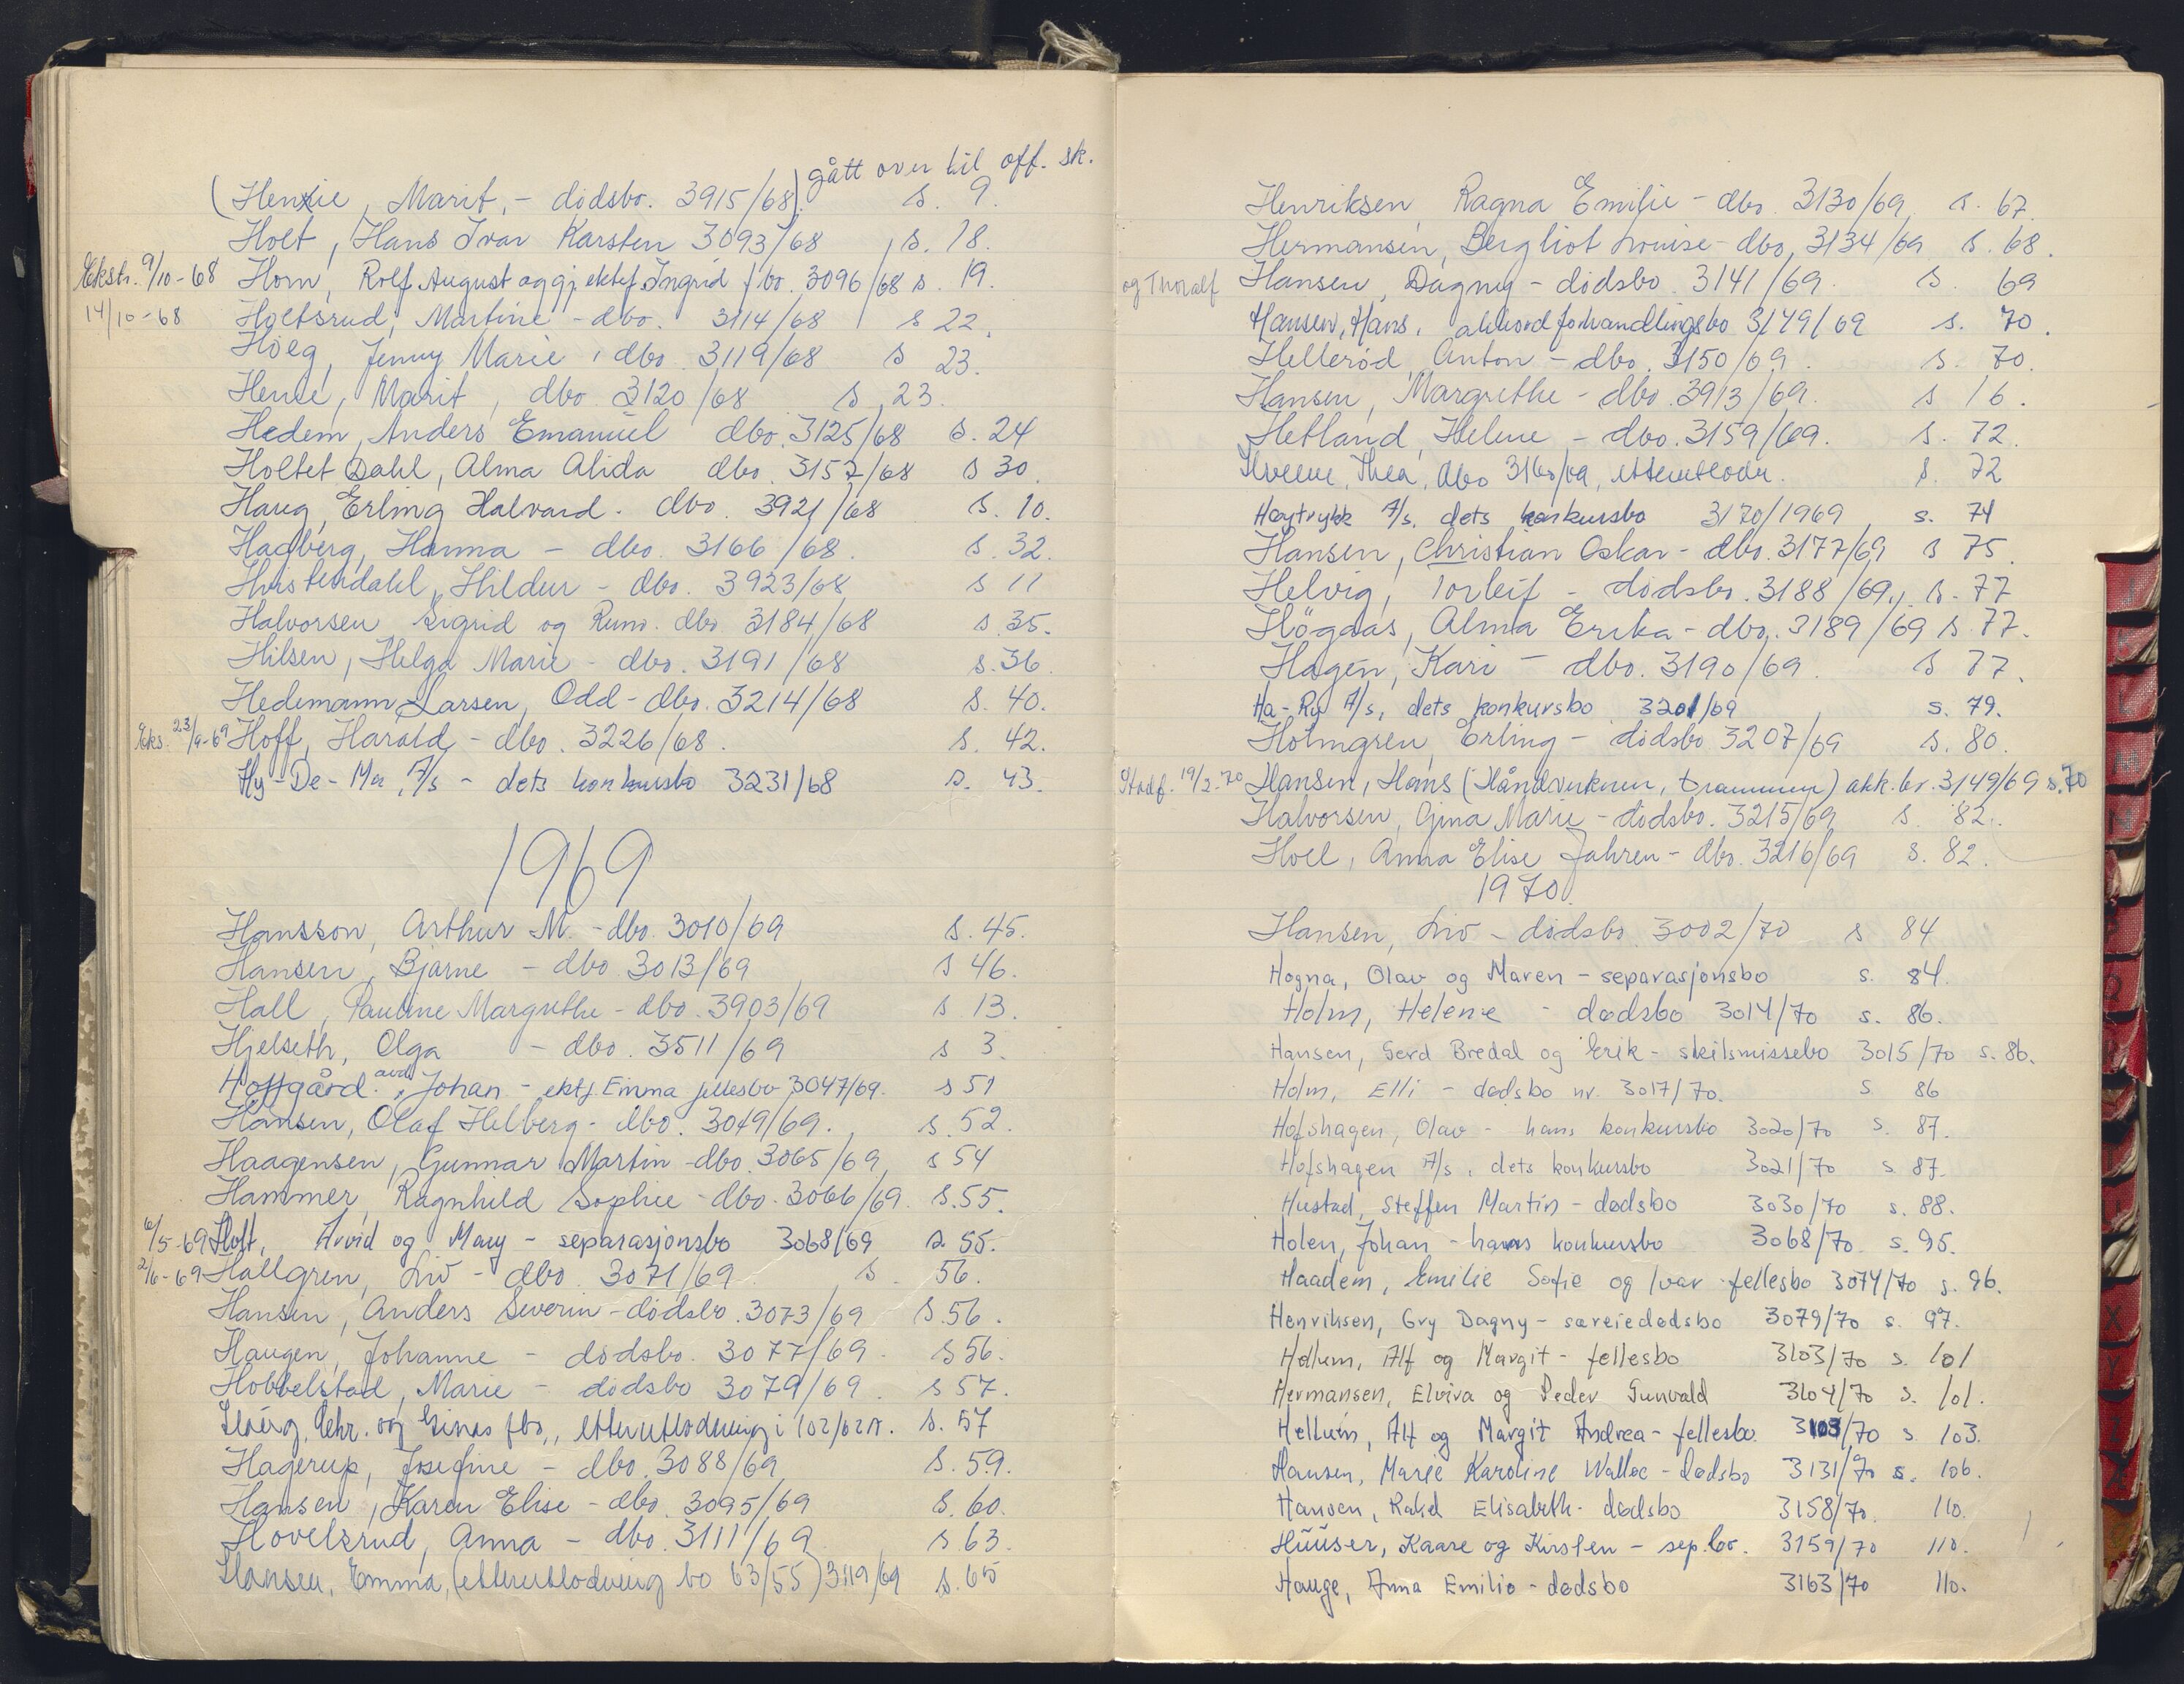 gått over til off. sk.
(Henie, Marit, - dødsbo. 3915/68) s. 9.
Holt, Hans Ivar Karsten 3093/68, s. 18.
Ekstr. 9/10-68 Horn, Rolf August og gj. ektef. Ingrid f.bo. 3096/68 s. 19.
14/10-68 Holtsrud, Martine - dbo. 3114/68 s 22.
Höeg, Jenny Marie, dbo. 3119/68 s 23.
Henie, Marit, dbo 3120/68 s. 23.
Hedem, Anders Emanuel dbo. 3125/68 s. 24
Holtet Dahl, Alma Alida dbo. 3157/68 s 30.
Haug, Erling Halvard. dbo. 3921/68 s. 10.
Hagberg, Hanna - dbo. 3166/68. s. 32.
Hvistendahl, Hildur - dbo. 3923/68 s 11
Halvorsen Sigrid og Runo. dbo 3184/68 s. 35.
Hilsen, Helga Marie - dbo. 3191/68 s. 36.
Hedemann Larsen, Odd - dbo. 3214/68 s. 40.
Eks. 23/9-69 Hoff, Harald - dbo. 3226/68. s. 42.
Hy-De-Ma A/s - dets konkursbo 3231/68 s. 43.
1969
Hansson, Arthur M. - dbo. 3010/69 s. 45.
Hansen, Bjarne - dbo 3013/69 s 46.
Hall, Pauline Margrethe - dbo. 3903/69 s 13.
Hjelseth, Olga - dbo. 3511/69 s 3.
Hoffgård. avd. Johan - ektf. Emma fellesbo 3047/69. s 51
Hansen, Olaf Helberg - dbo. 3049/69. s. 52.
Haagensen, Gunnar Martin - dbo. 3065/69, s 54
Hammer, Ragnhild Sophie - dbo. 3066/69. s. 55.
6/5-69 Holt, Arvid og Mary - separasjonsbo 3068/69 s 55.
2/6-69 Hallgren, Liv - dbo. 3071/69. s. 56.
Hansen, Anders Severin - dödsbo. 3073/69 s. 56.
Haugen, Johanne - dödsbo. 3077/69. s 56.
Hobbelstad, Marie - dödsbo 3079/69. s 57.
Chr. og Ginas fbo., etterutlodning i 102/62 A. s. 57
Hagerup, Josefine - dbo. 3088/69 s. 59.
Hansen, Karen Elise - dbo. 3095/69 s. 60.
Hovelsrud, Anna - dbo. 3111/69 s 63.
Hansen, Emma, (etterutlodning bo 63/55) 3119/69 s. 65
Henriksen Ragna Emilie - dbo. 3130/69, s. 67.
Hermansen, Bergliot Louise - dbo, 3134/69 s. 68.
og Thoralf Hansen, Dagny - dödsbo. 3141/69. s. 69
Hansen, Hans, akkordforhandlingsbo 3149/69 s. 70.
Helleröd, Anton - dbo. 3150/69. s. 70.
Hansen, Margrethe - dbo. 3913/69. s 16.
Hetland, Helene - dbo. 3159/69. s. 72.
Thea, dbo 3160/69, etterutlodn. s. 72
Høytrykk A/s, dets konkursbo 3170/1969 s. 74
Hansen, Christian Oskar - dbo. 3177/69 s 75.
Helvig, Torleif - dödsbo. 3188/69., s. 77
Högaas, Alma Erika - dbo. 3189/69 s. 77.
Hagen, Kari - dbo. 3190/69. s 77.
Ha-Ry A/s, dets konkursbo 3201/69 s. 79.
Holmgren, Erling - dödsbo 3207/69 s. 80.
Stadf. 19/2-70 Hansen, Hans (Håndverkeren, Drammen) akk. br. 3149/69 s. 70
Halvorsen, Gina Marie - dödsbo. 3215/69 s. 82.
Holl, Anna Elise Jahren - dbo. 3216/69 s. 82.
1970.
Hansen, Liv - dödsbo 3002/70 s 84
Hogna, Olav og Maren - separasjonsbo s. 84.
Holm, Helene - dødsbo 3014/70 s. 86.
Hansen, Gerd Bredal og Erik - skilsmissebo 3015/70 s. 86.
Holm, Elli - dødsbo nr. 3017/70. s 86
Hofshagen, Olav - hans konkursbo 3020/70 s. 87.
Hofshagen A/s, dets konkursbo 3021/70 s. 87.
Hustad, Steffen Martin - dødsbo 3030/70 s. 88.
Holen, Johan - hans konkursbo 3068/70. s. 95.
Haadem, Emilie Sofie og Ivar fellesbo 3074/70 s. 96.
Henriksen, Gry Dagny - særeiedødsbo 3079/70 s. 97.
Hellum, Alf og Margit - fellesbo 3103/70 s. 101
Hermansen, Elvira og Peder Gunvald 3104/70 s. 101.
Hellum, Alf og Margit Andrea - fellesbo. 3103/70 s. 103.
Hansen, Marie Karoline Walløe - dødsbo 3131/70 s. 106.
Hansen, Rakel Elisabeth - dødsbo 3158/70. 110.
Hüüser, Kaare og Kirsten - sep.bo. 3159/70 110.
Hauge, Anna Emilie - dødsbo 3163/70 110.